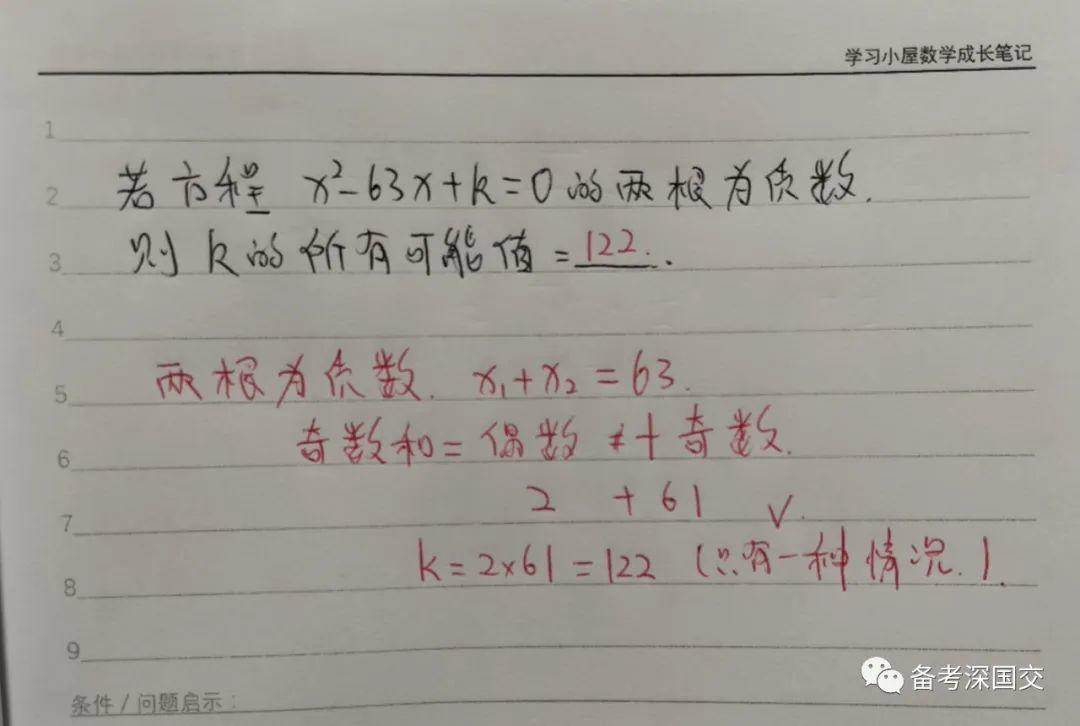 学习小屋数学成长笔记
1
2 若方程 x²-63x+k=0的两根为质数.
3 则k的所有可能值=122.
4
5 两根为质数. x₁+x₂=63.
6 奇数和=偶数+奇数.
7 2 +61 √.
8 k=2×61=122 (只有一种情况.).
9
条件/问题启示:
备考深国交